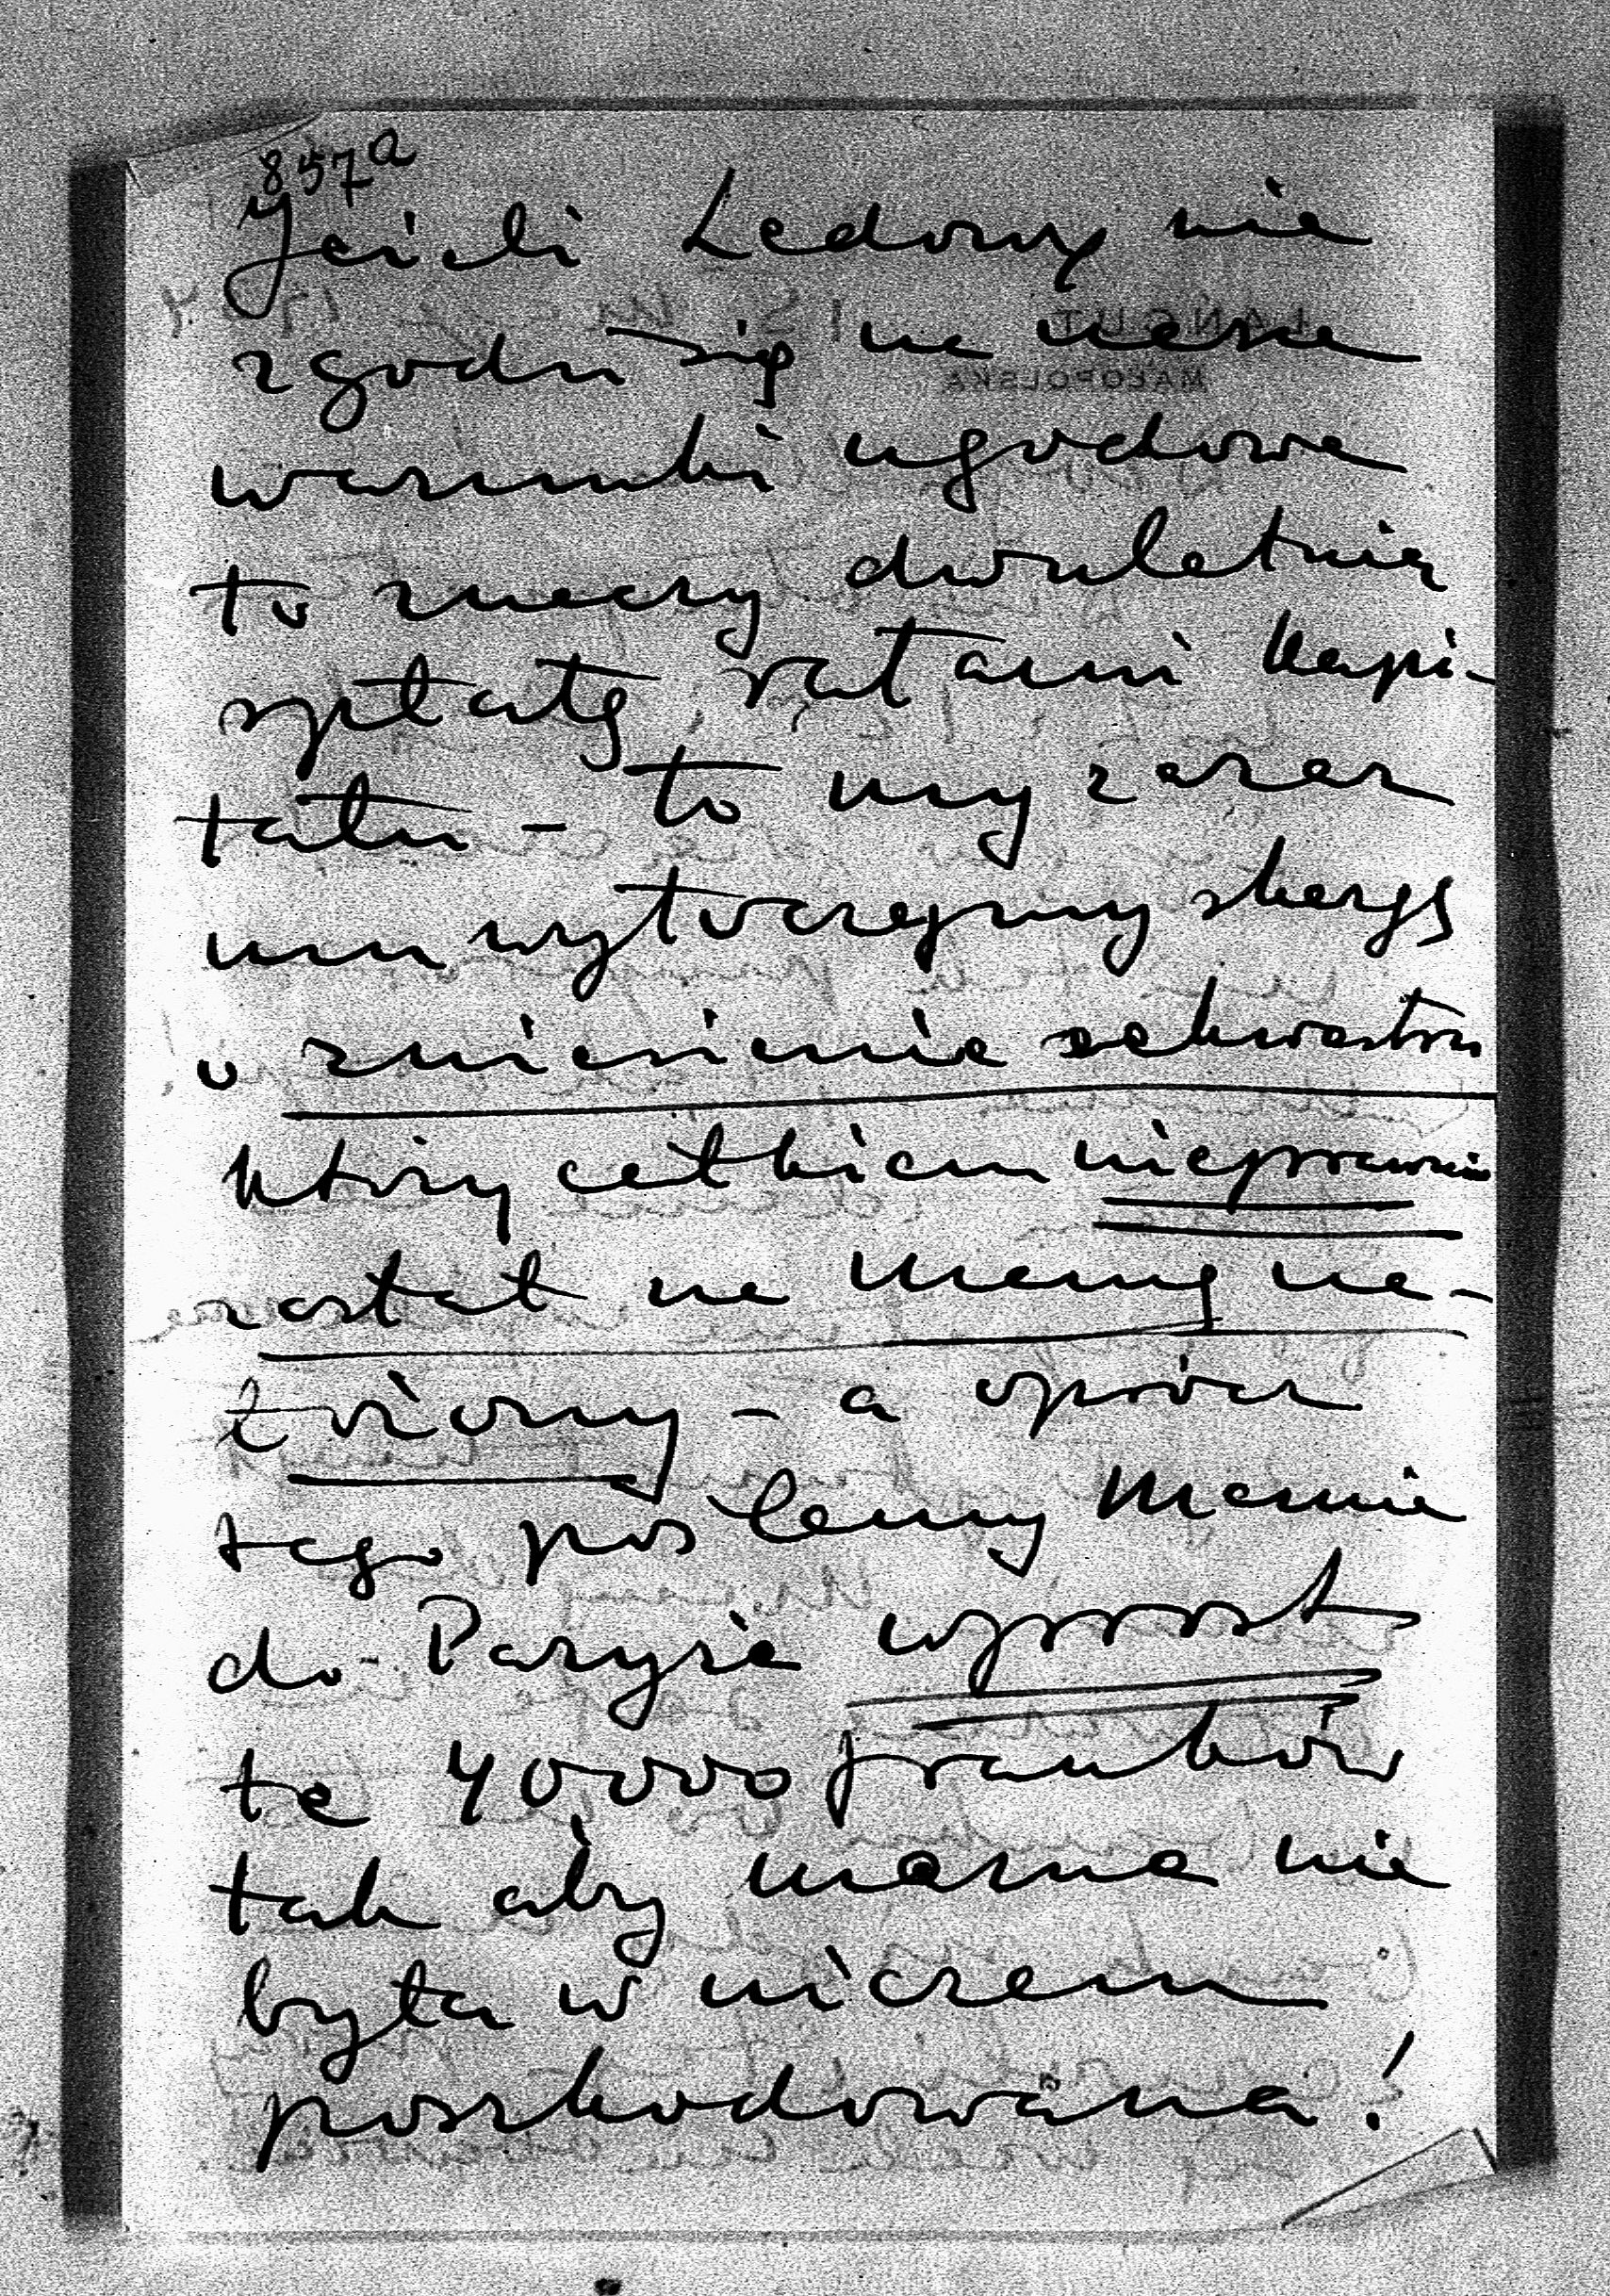 857a
Jeżeli Ledowy nie
zgodzi się na nasze
warunki ugodowe
to znaczy dwuletnią
spłatę ratami kapi-
tału - to my zaraz
mu wytoczymy skargę
o zniesienie sekwestru
który całkiem nieprawnie
został na Mamę na-
łożony - a oprócz
tego poślemy Mamie
do Paryża wprost
te 40000 franków
tak aby mama nie
była w niczem
poszkodowana!
ŁAŃCUT
MAŁOPOLSKA